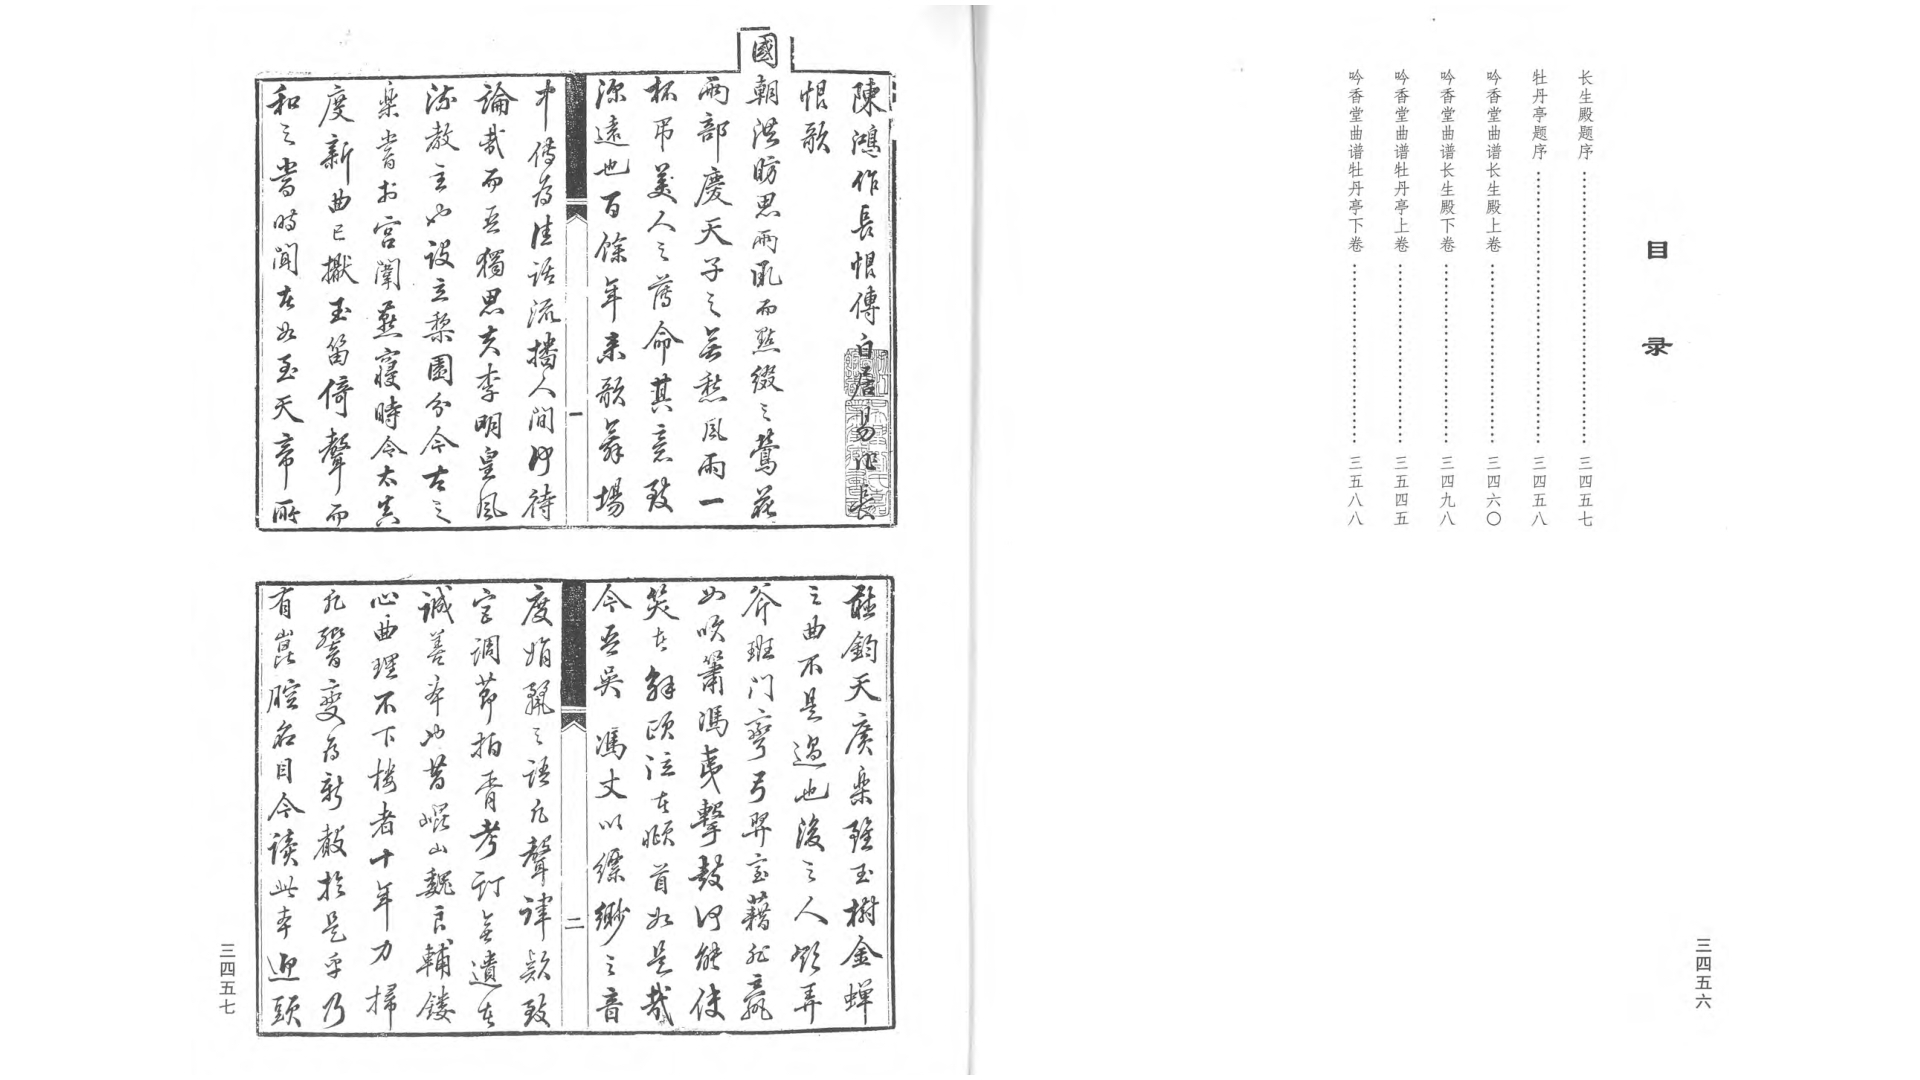 目录
长生殿题序……三四五七
牡丹亭题序……三四五八
吟香堂曲谱长生殿上卷……三四六〇
吟香堂曲谱长生殿下卷……三四九八
吟香堂曲谱牡丹亭上卷……三五四五
吟香堂曲谱牡丹亭下卷……三五八八
三四五六
陳鴻作長恨傳白居易作長
恨歌
國朝洪昉思兩取而點綴之鶯花
兩部慶天子之無愁風雨一
杯弔美人之薄命其意致
深遠也百餘年来歌舞場
一
中傳為佳話流播人間何待
論哉而吾獨思夫李明皇風
流教主也設立梨園分今古之
樂嘗於宮闈燕寢時令太真
度新曲已擫玉笛倚聲而
和之當時聞者如至天帝所
聽鈞天廣樂雖玉樹金蟬
之曲不是過也後之人欲弄
斧班門彎弓羿室藉非嬴
女吹簫馮夷擊鼓何能使
笑者解頤泣者頫首如是哉
今吾吴 馮丈以縹緲之音
二
度娟麗之語凡聲律款致
宮調節拍胥考訂無遺在
誠善本也昔崐山魏良輔鏤
心曲理不下樓者十年力掃
凡響變為新聲於是乎乃
有崑腔名目今读此本迎頭
三四五七